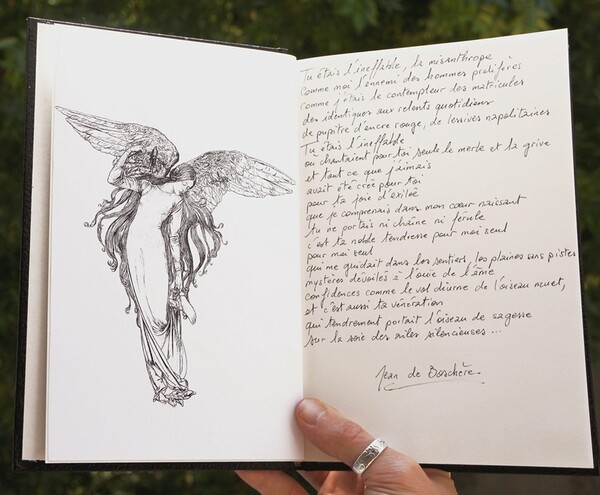 Tu étais l'ineffable, la misanthrope
comme moi l'ennemi des hommes prolifères
comme j'étais le contempteur des matricules
des identiques aux relents quotidiens
de pupitre d'encre rouge, de lessives napolitaines
Tu étais l'ineffable
où chantaient pour toi seule le merle et la grive
et tant ce que j'aimais
avait été créé pour toi
pour ta joie d'exilée
que je comprenais dans mon cœur naissant
tu ne portais ni chaîne ni férule
c'est ta noble tendresse pour moi seul
pour moi seul
qui me guidait dans les sentiers, les plaines sans pistes
mystères dévoilés à l'ouïe de l'âme
confidences comme le vol diurne de l'oiseau muet,
et c'est aussi ta vénération
qui tendrement portait l'oiseau de sagesse
sur la soie des ailes silencieuses...
Jean de Boschère